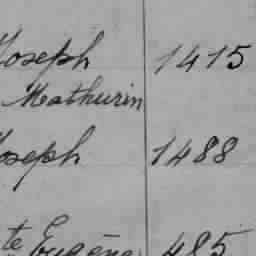 Joseph 1415
Mathurin
Joseph 1488
te Eugène 485